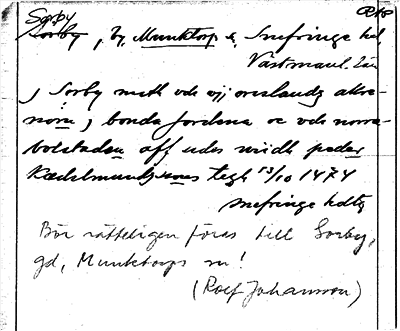 Sørby
Sorby, by, Munktorp s., Snefringe hd,
Västmanl. län
j Sorby meth vdi vij øreslandz akre-
nom j bonda jordena oc vdi norra-
bolstaden aff eder widh peder
Kædelmundzsons tegh 13/10 1474
snefringe hdtg
Bör rätteligen föras till Sorby,
gd, Munktorps sn!
(Rolf Johansson)